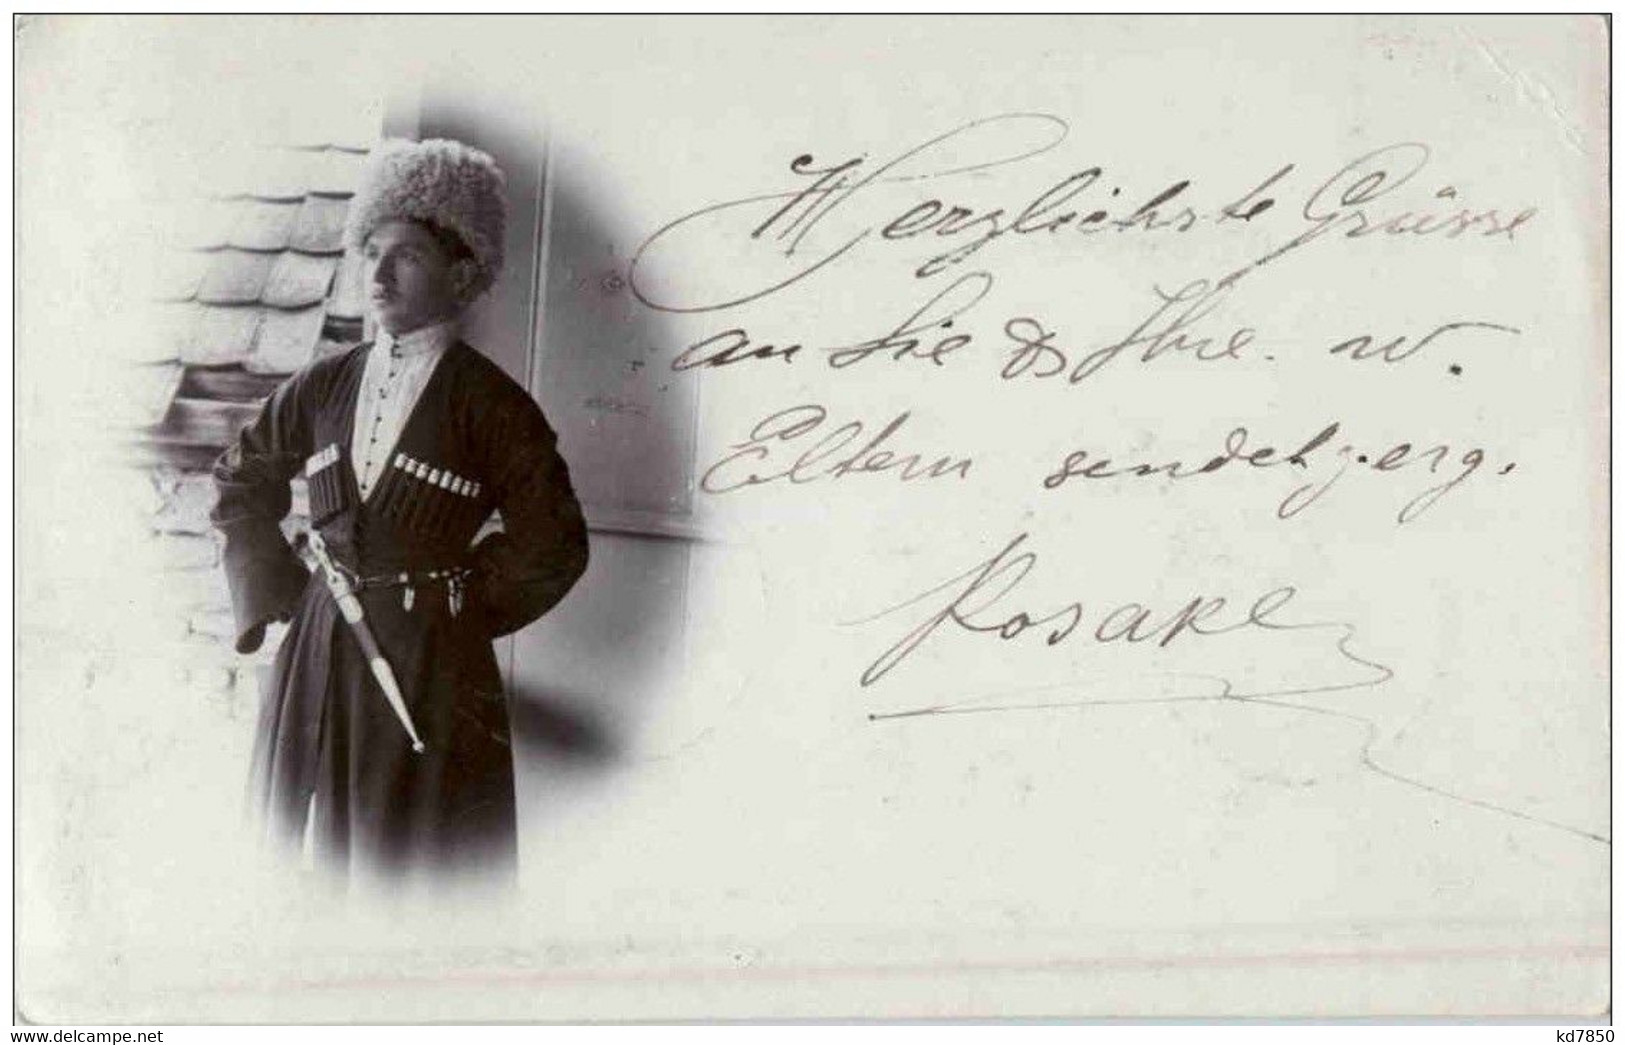 Herzlichste Grüsse
an Sie & Ihre. w.
Eltern sendet erg.
Kosake
www.delcampe.net
kd7850